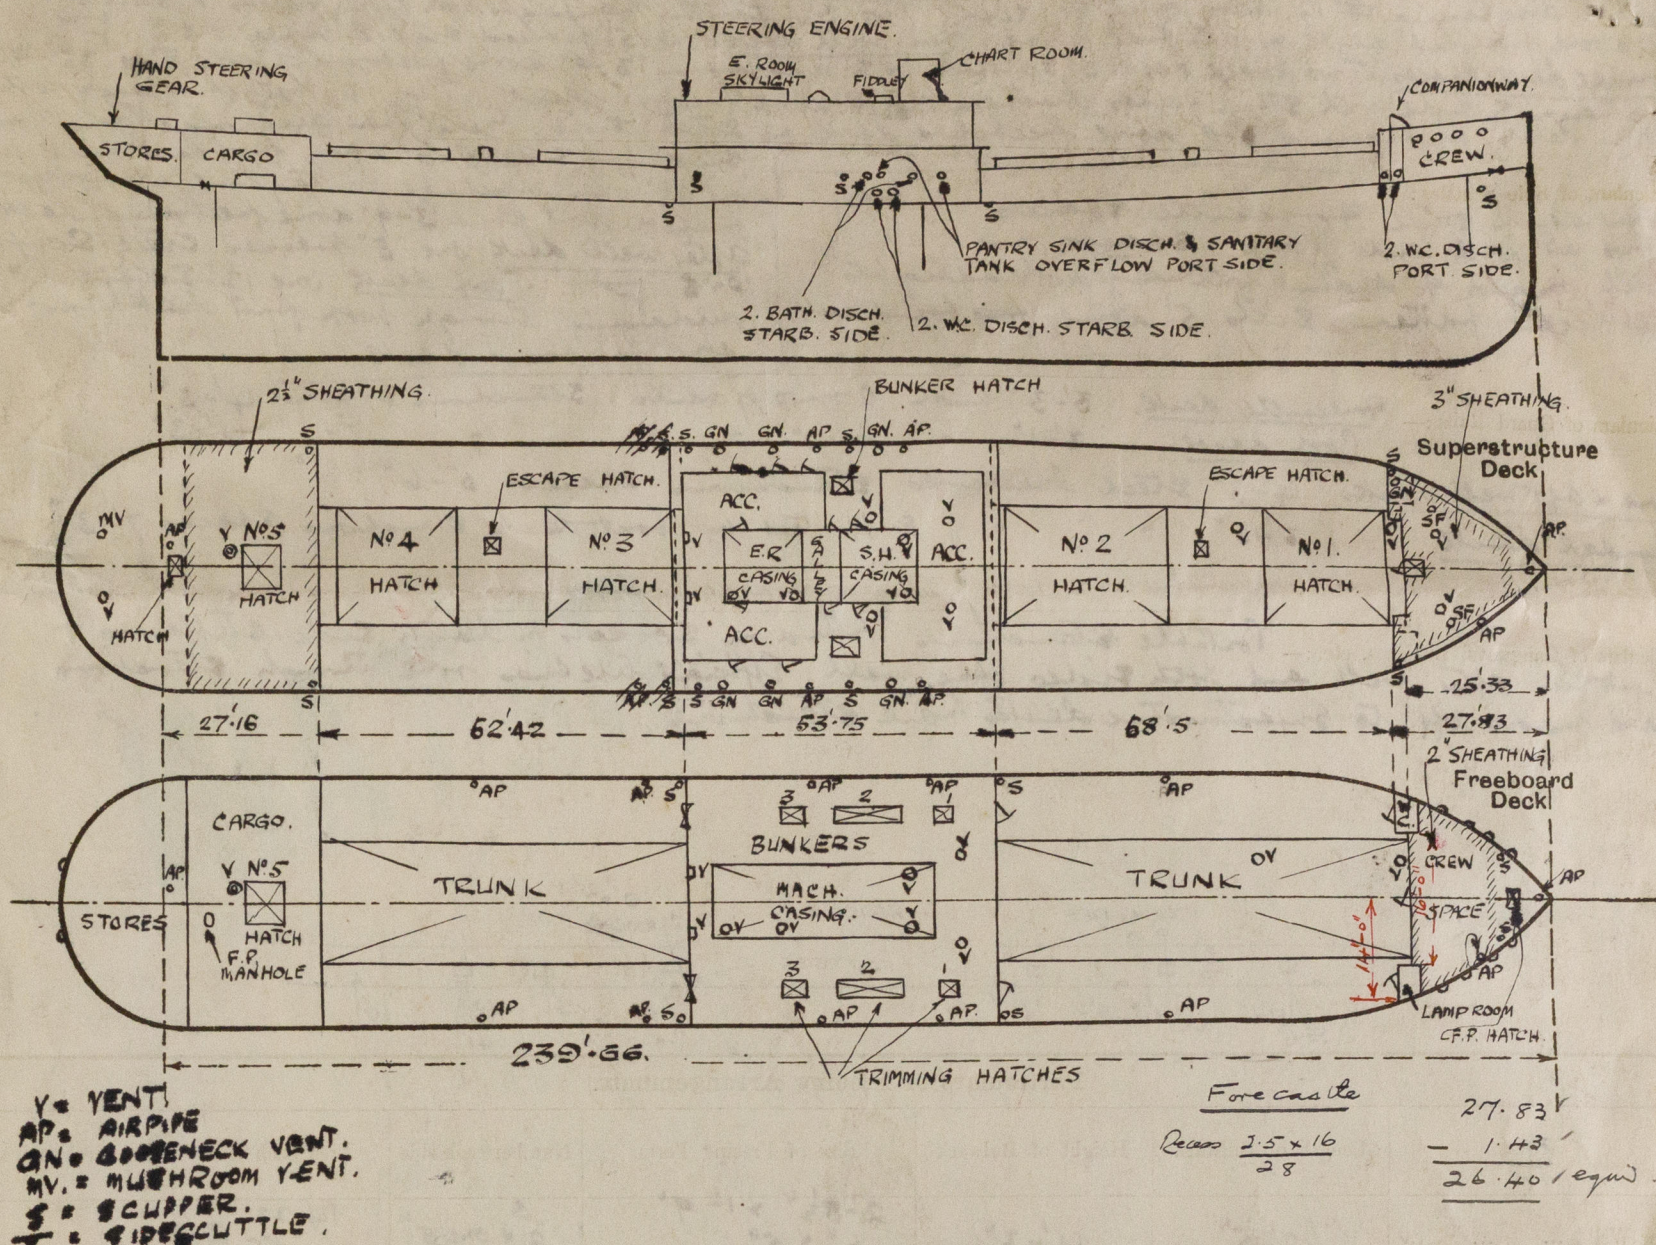 STEERING ENGINE.
HAND STEERING
GEAR.
E. ROOM
SKYLIGHT
FIDDLEY
CHART ROOM.
COMPANIONWAY.
STORES.
CARGO
CREW.
S
S
S
S
S
S
PANTRY SINK DISCH. & SANITARY
TANK OVERFLOW PORT SIDE.
2. W.C. DISCH.
PORT SIDE.
2. BATH. DISCH.
STARB. SIDE.
2. W.C. DISCH. STARB. SIDE.
2½" SHEATHING.
BUNKER HATCH
3" SHEATHING.
Superstructure
Deck
S
S. S. GN GN. AP S. GN. AP.
S
ESCAPE HATCH.
ESCAPE HATCH.
ACC.
MV
AP
V
No 5
HATCH
HATCH
V
No 4
HATCH
No 3
HATCH.
V
V
E.R
CASING
V V
S.H.
CASING
V
V
V
V
ACC.
V
V
ACC.
No 2
HATCH.
V
No 1.
HATCH.
SF
V
V
SF
AP.
AP
S
S S GN GN AP S GN. AP.
S
25'.33
27'.16
62'.42
53'.75
68'.5
27'.83
2" SHEATHING
Freeboard
Deck
AP
AP. S
AP
AP
S
AP
CARGO.
3 2 1
BUNKERS
V
V
AP
V
No 5
HATCH
STORES
F.P.
MANHOLE
TRUNK
V
V
MACH.
CASING.
V
V
V V
V
TRUNK
V
V
CREW
SPACE
16'-0"
14'-0"
AP
AP
3 2 1
AP
AP. S
AP
AP.
S
AP
LAMP ROOM
F.P. HATCH.
239'.66.
TRIMMING HATCHES
V = VENT
AP = AIRPIPE
GN = GOOSENECK VENT.
MV. = MUSHROOM VENT.
S = SCUPPER.
= SIDESCUTTLE.
Forecastle
Recess 2.5 x 16
28
27.83
- 1.43
26.40 equiv